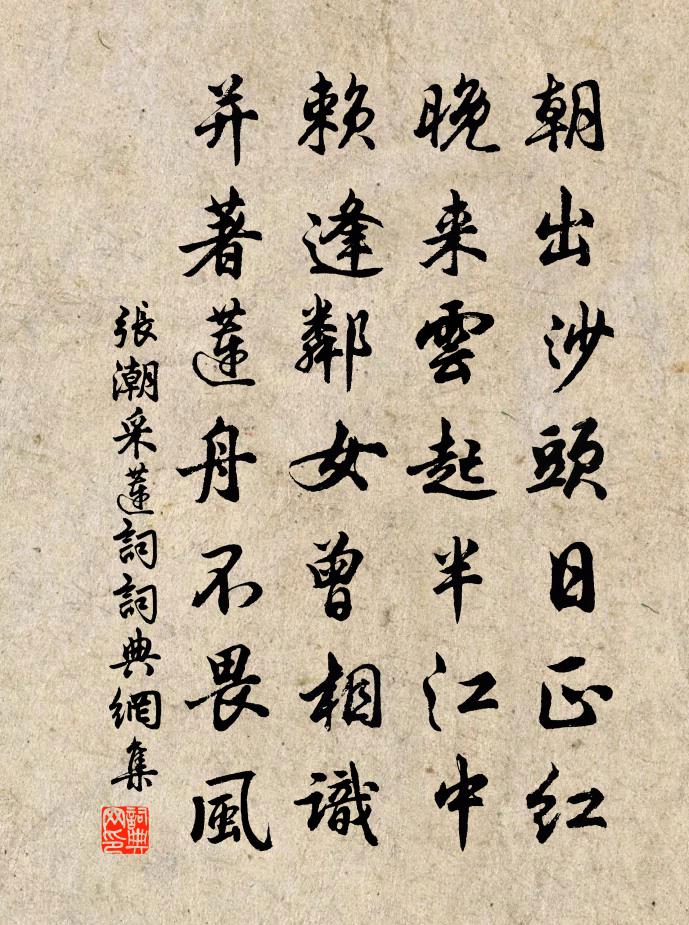 朝出沙頭日正紅
晚来雲起半江中
賴逢鄰女曾相識
并著蓮舟不畏風
張潮采蓮詞詞典網集
詞典网印